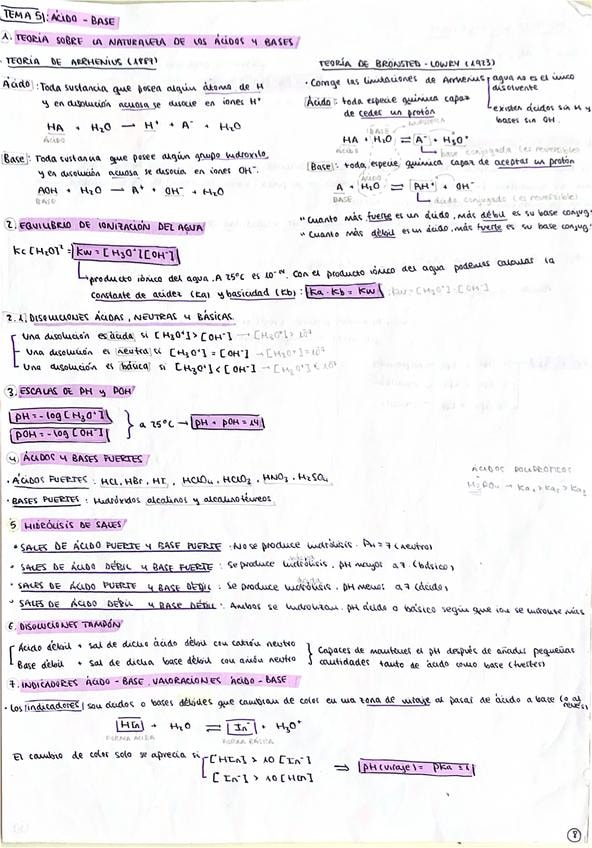 TEMA 5: ÁCIDO - BASE
1. TEORÍA SOBRE LA NATURALEZA DE LOS ÁCIDOS Y BASES
· TEORÍA DE ARRHENIUS (1887)
Ácido: Toda sustancia que posea algún átomo de H
y en disolución acuosa se disocie en iones H⁺
HA + H₂O → H⁺ + A⁻ + H₂O
ÁCIDO
Base: Toda sustancia que posee algún grupo hidroxilo
y en disolución acuosa se disocia en iones OH⁻.
AOH + H₂O → A⁺ + OH⁻ + H₂O
BASE
TEORÍA DE BRÖNSTED - LOWRY (1923)
· Corrige las limitaciones de Arrhenius
agua no es el único
disolvente
existen ácidos sin H y
bases sin OH.
Ácido: toda especie química capaz
de ceder un protón
BASE
HA + H₂O ⇌ A⁻ + H₃O⁺
ÁCIDO
base conjugada (es reversible)
Base: toda especie química capaz de aceptar un protón
ÁCIDO
A + H₂O ⇌ AH⁺ + OH⁻
BASE
ácido conjugado (es reversible)
"Cuanto más fuerte es un ácido, más débil es su base conjug.
"Cuanto más débil es un ácido, más fuerte es su base conjug.
2. EQUILIBRIO DE IONIZACIÓN DEL AGUA
Kc [H₂O]² = Kw = [H₃O⁺][OH⁻]
producto iónico del agua. A 25ºC es 10⁻¹⁴. Con el producto iónico del agua podemos calcular la
constante de acidez (Ka) y basicidad (Kb): Ka · Kb = Kw : Kw = [H₃O⁺]·[OH⁻]
2.1. DISOLUCIONES ÁCIDAS, NEUTRAS Y BÁSICAS.
Una disolución es ácida si [H₃O⁺] > [OH⁻] → [H₃O⁺] > 10⁻⁷
Una disolución es neutra si [H₃O⁺] = [OH⁻] → [H₃O⁺] = 10⁻⁷
Una disolución es básica si [H₃O⁺] < [OH⁻] → [H₃O⁺] < 10⁻⁷
3. ESCALAS DE PH y POH
pH = -log [H₃O⁺]
pOH = -log [OH⁻]
a 25ºC → pH + pOH = 14
4. ÁCIDOS Y BASES FUERTES
· ÁCIDOS FUERTES: HCl, HBr, HI, HClO₄, HClO₃, HNO₃, H₂SO₄
· BASES FUERTES: Hidróxidos alcalinos y alcalinotérreos.
ÁCIDOS POLIPRÓTICOS
H₃PO₄ → Ka₁ > Ka₂ > Ka₃
5. HIDRÓLISIS DE SALES
· SALES DE ÁCIDO FUERTE Y BASE FUERTE: No se produce hidrólisis. PH = 7 (neutro)
· SALES DE ÁCIDO DÉBIL Y BASE FUERTE: Se produce hidrólisis, pH mayor a 7 (básico)
· SALES DE ÁCIDO FUERTE Y BASE DÉBIL: Se produce hidrólisis, pH menor a 7 (ácido)
· SALES DE ÁCIDO DÉBIL Y BASE DÉBIL: Ambos se hidrolizan. pH ácido o básico según que ion se hidrolite más
6. DISOLUCIONES TAMPÓN
Ácido débil + sal de dicho ácido débil con catión neutro
Base débil + sal de dicha base débil con anión neutro
Capaces de mantener el pH después de añadir pequeñas
cantidades tanto de ácido como base (fuertes)
7. INDICADORES ÁCIDO - BASE. VALORACIONES ÁCIDO - BASE
· Los indicadores son ácidos o bases débiles que cambian de color en una zona de viraje al pasar de ácido a base (o al revés)
HIn + H₂O ⇌ In⁻ + H₃O⁺
FORMA ÁCIDA
FORMA BÁSICA
El cambio de color solo se aprecia si
[HIn] > 10 [In⁻]
[In⁻] > 10 [HIn]
⇒ pH(viraje) = pKa ± 1
8